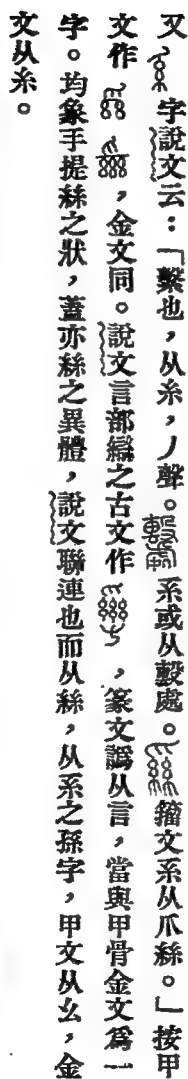 又字說文云：「繫也，从糸，丿聲。系或从毄處。籀文系从爪絲。」按甲
文作，金文同。說文言部䜌之古文作，篆文譌从言，當與甲骨金文為一
字。均象手提絲之狀，蓋亦絲之異體，說文聯連也而从絲，从系之孫字，甲文从幺，金
文从糸。